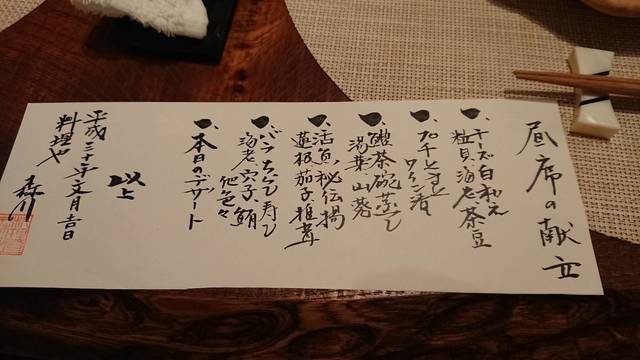 昼席の献立
チーズ白和え
粒貝、海老、茶豆
プチトマト
ワイン漬
酸茶碗蒸し
湯葉、山葵
活魚、秘伝揚
蓮根、茄子、椎茸
バラちらし寿し
海老、穴子、鮪
他色々
本日のデザート
以上
平成三十年文月吉日
料理や